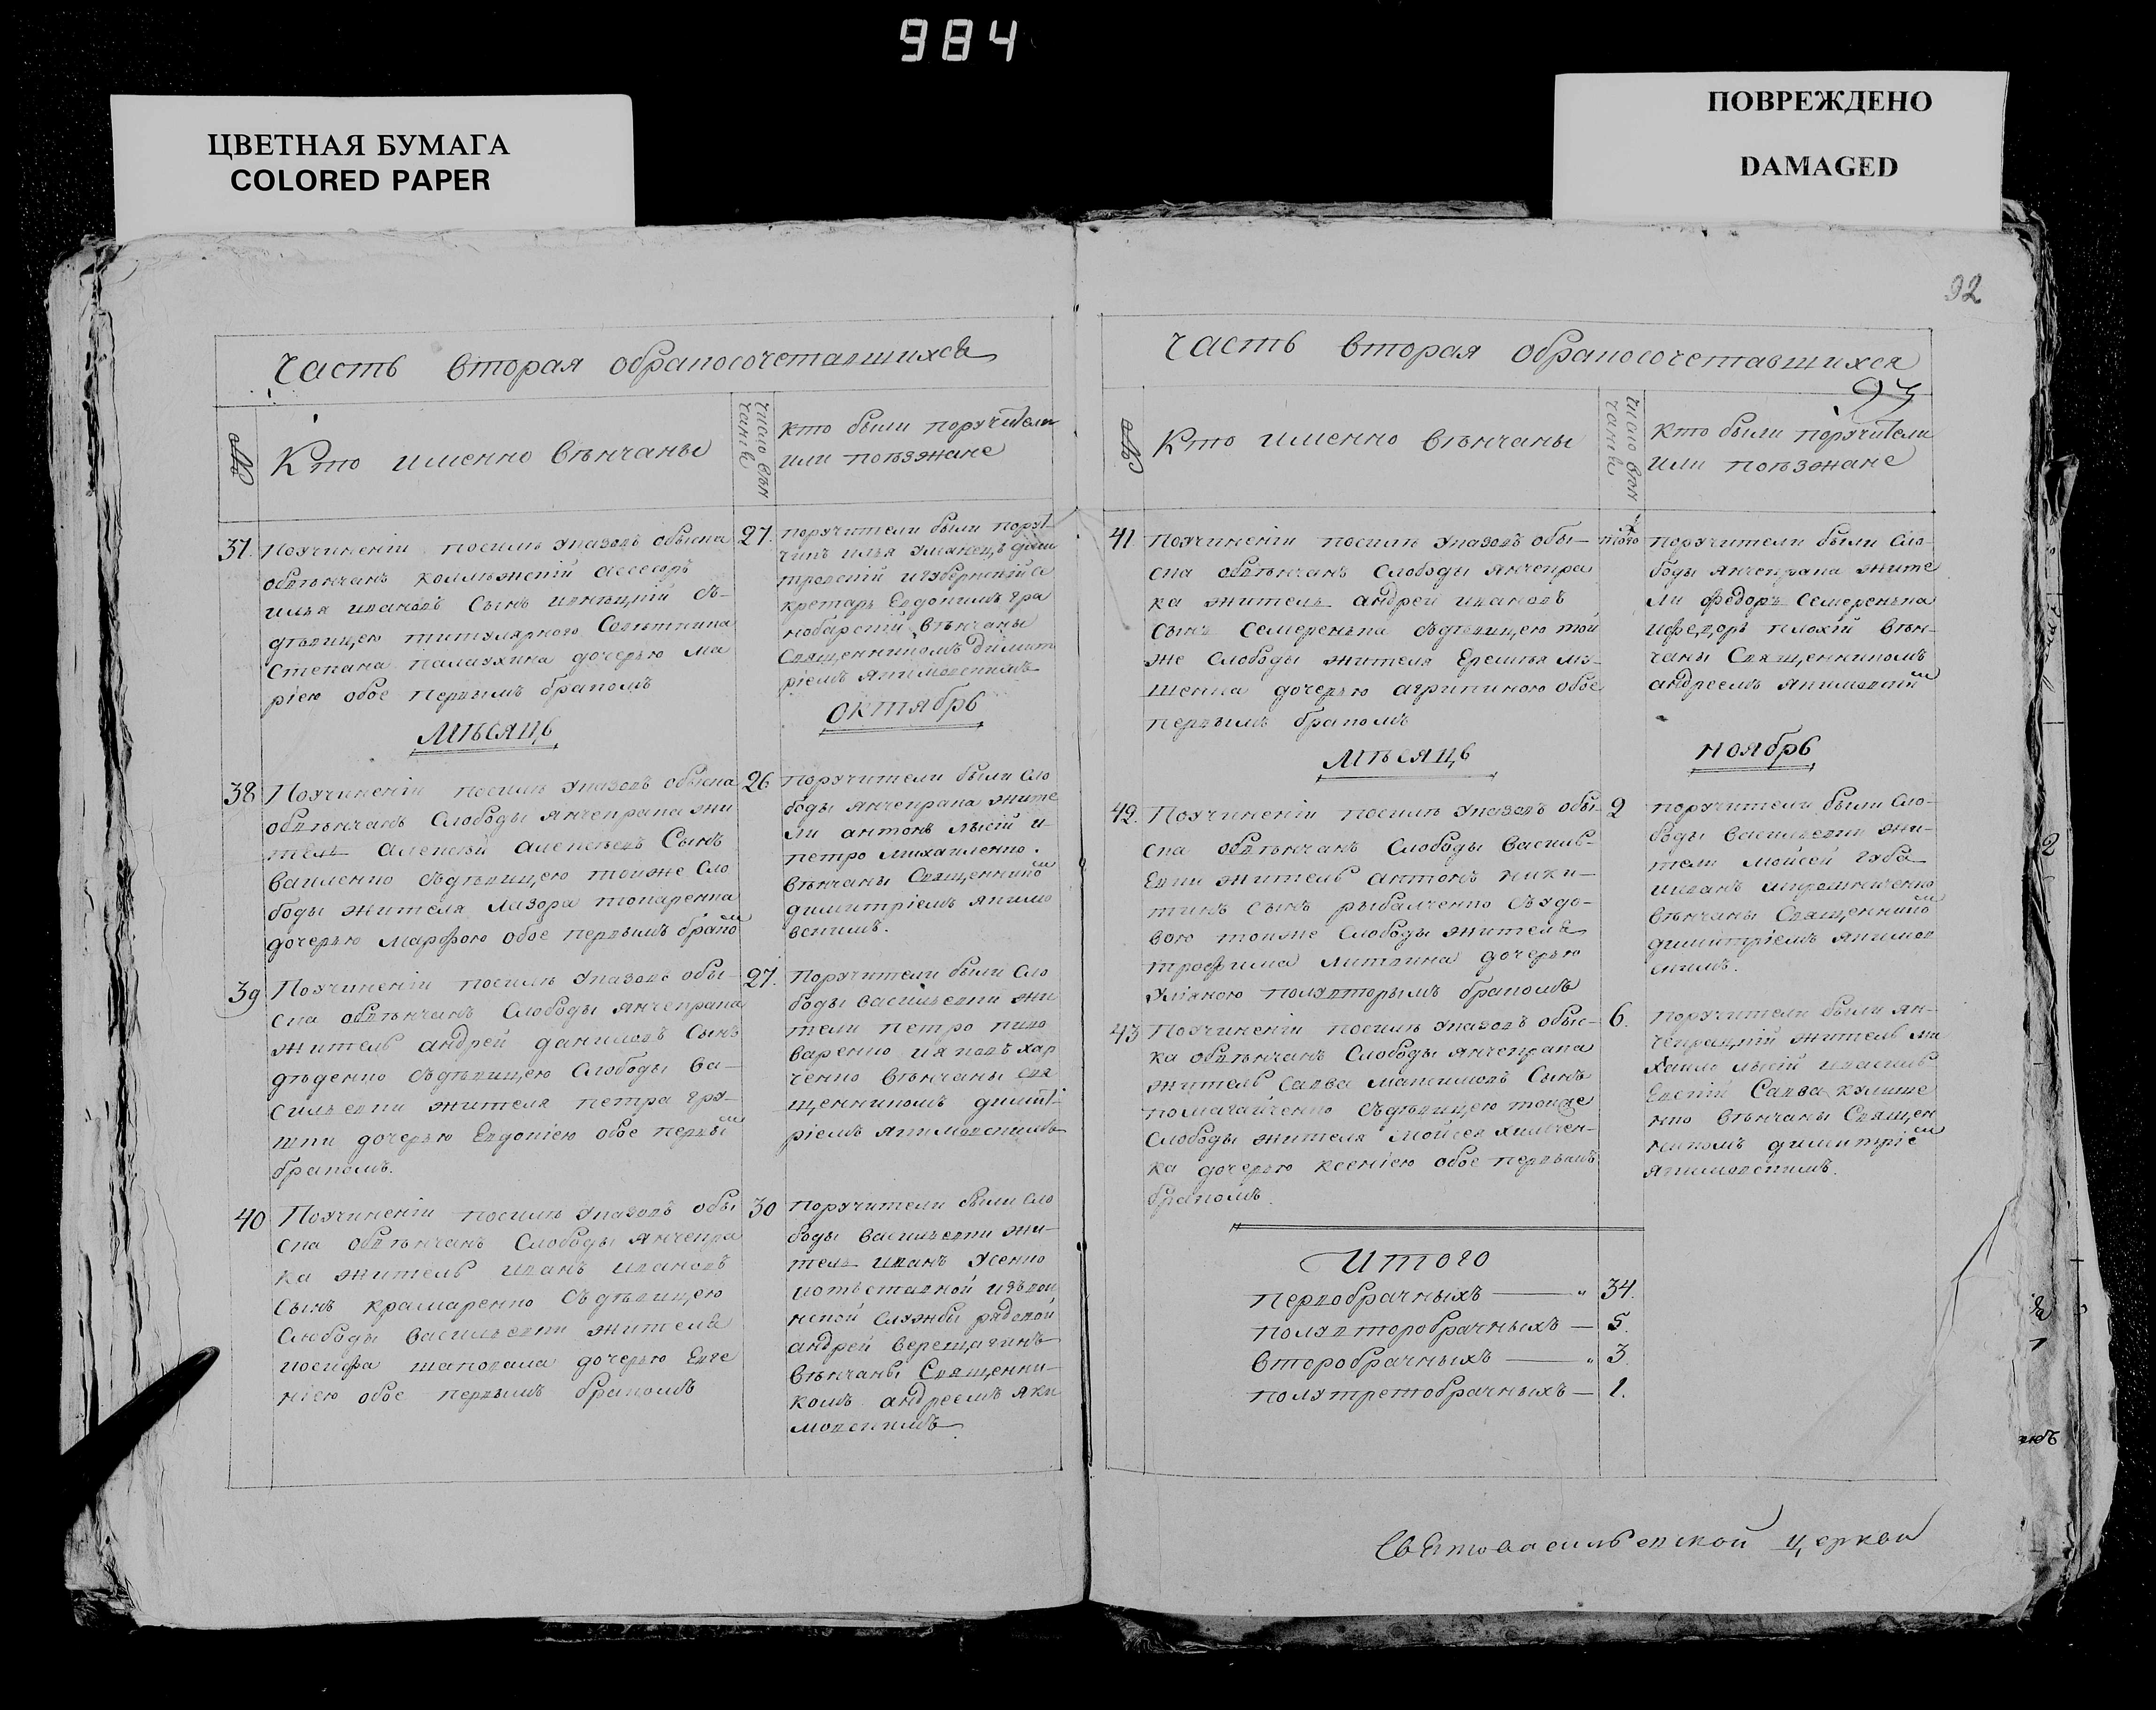 984
ЦВЕТНАЯ БУМАГА
COLORED PAPER
ПОВРЕЖДЕНО
DAMAGED
92
Часть вторая обракосочетавшихся
№
Кто именно вѣнчаны
число вѣн
чанія
кто были поручители
или поѣзжане
37.
Поучиненіи посилѣ указовъ обыска
обвѣнчанъ коллѣжскій асессоръ
илья ивановъ Сынъ
дѣвицею титулярного Совѣтника
Степана палаухина дочерью ма
ріею обое первымъ бракомъ
27.
поручители были порут
чикъ илья
игубернскій се
кретарь Евдокимъ гра
вѣнчаны
Священникомъ Димит
ріемъ якимовскимъ
Мѣсяцъ
Октябрь
38
Поучиненіи посилѣ указовъ обыска
обвѣнчанъ Слободы Янчекрака жи
тель алексѣй алексѣевъ Сынъ
василенко съдѣвицею тоиже Сло
боды жителя Лазора токаренка
дочерью марфою обое первымъ брако
м
26
Поручители были Сло
боды Янчекрака жите
ли антонъ лысій и
петро михаиленко.
вѣнчаны Священнико
м
димитріемъ якимо
вскимъ.
39
Поучиненіи посилѣ указовъ обы-
ска обвѣнчанъ Слободы Янчекрака
житель андрей даниловъ Сынъ
дѣденко съдѣвицею Слободы Ва-
сильевки жителя петра гру-
шки дочерью Евдокіею обое первы
м
бракомъ.
27.
Поручители были Сло
боды васильевки жи
тели петро пиво
варенко ияковъ хар
ченко вѣнчаны свя
щенникомъ димит-
ріемъ якимовскимъ
40
Поучиненіи посилѣ указовъ обы
ска обвѣнчанъ Слободы Янчекра
ка житель иванъ ивановъ
сынъ крамаренко съдѣвицею
Слободы васильевки жителя
иосифа шаповала дочерью Евге
ніею обое первымъ бракомъ
30
Поручители были Сло
боды васильевки жи-
тель иванъ Усенко
иотъставной изъвои
нской службы рядовой
андрей верещагинъ
вѣнчаны Священни-
комъ андреемъ яки
мовскимъ
Часть вторая обракосочетавшихся
93
№
Кто именно вѣнчаны
число вѣн
чанія
Кто были поручители
или поѣзжане
41
Поучиненіи посилѣ указовъ обы-
ска обвѣнчанъ Слободы Янчекра
ка житель андрей ивановъ
сынъ Семеренька съдѣвицею той
же Слободы жителя Еремѣя лу-
щенка дочерью агрипиною обое
первымъ бракомъ
того
поручители были Сло-
боды Янчекрака жите
ли федоръ Семеренька
ифедоръ плохій вѣн-
чаны Священникомъ
андреемъ якимовски
м
Мѣсяцъ
Ноябрь
42.
Поучиненіи посилѣ указовъ обы-
ска обвѣнчанъ Слободы Василь-
Евки житель антонъ ники-
тинъ сынъ рыбалченко съвдо-
вою тоиже Слободы жителя
трофима литвина дочерью
Уліяною полувторымъ бракомъ
2
поручители были Сло-
боды васильевки жи-
тели мойсей губа
ииванъ мирошниченко
вѣнчаны Священнико
м
димитріемъ якимов
скимъ.
43
Поучиненіи посилѣ указовъ обыс-
ка обвѣнчанъ Слободы Янчекрака
житель Савва Максимовъ Сынъ
помагайченко съдѣвицею тоиже
Слободы жителя Мойсея хильчен-
ка дочерью ксеніею обое первымъ
бракомъ.
6.
поручители были ян-
чекрацкій житель ми
хаилъ лысій ивасиль
Евскій Савва кулише
нко вѣнчаны Священ
никомъ димитріе
м
якимовскимъ.
Итого
первобрачныхъ — " 34.
полувторобрачныхъ — 5.
второбрачныхъ — " 3.
полутретобрачныхъ — 1.
Святовасильевской церкви